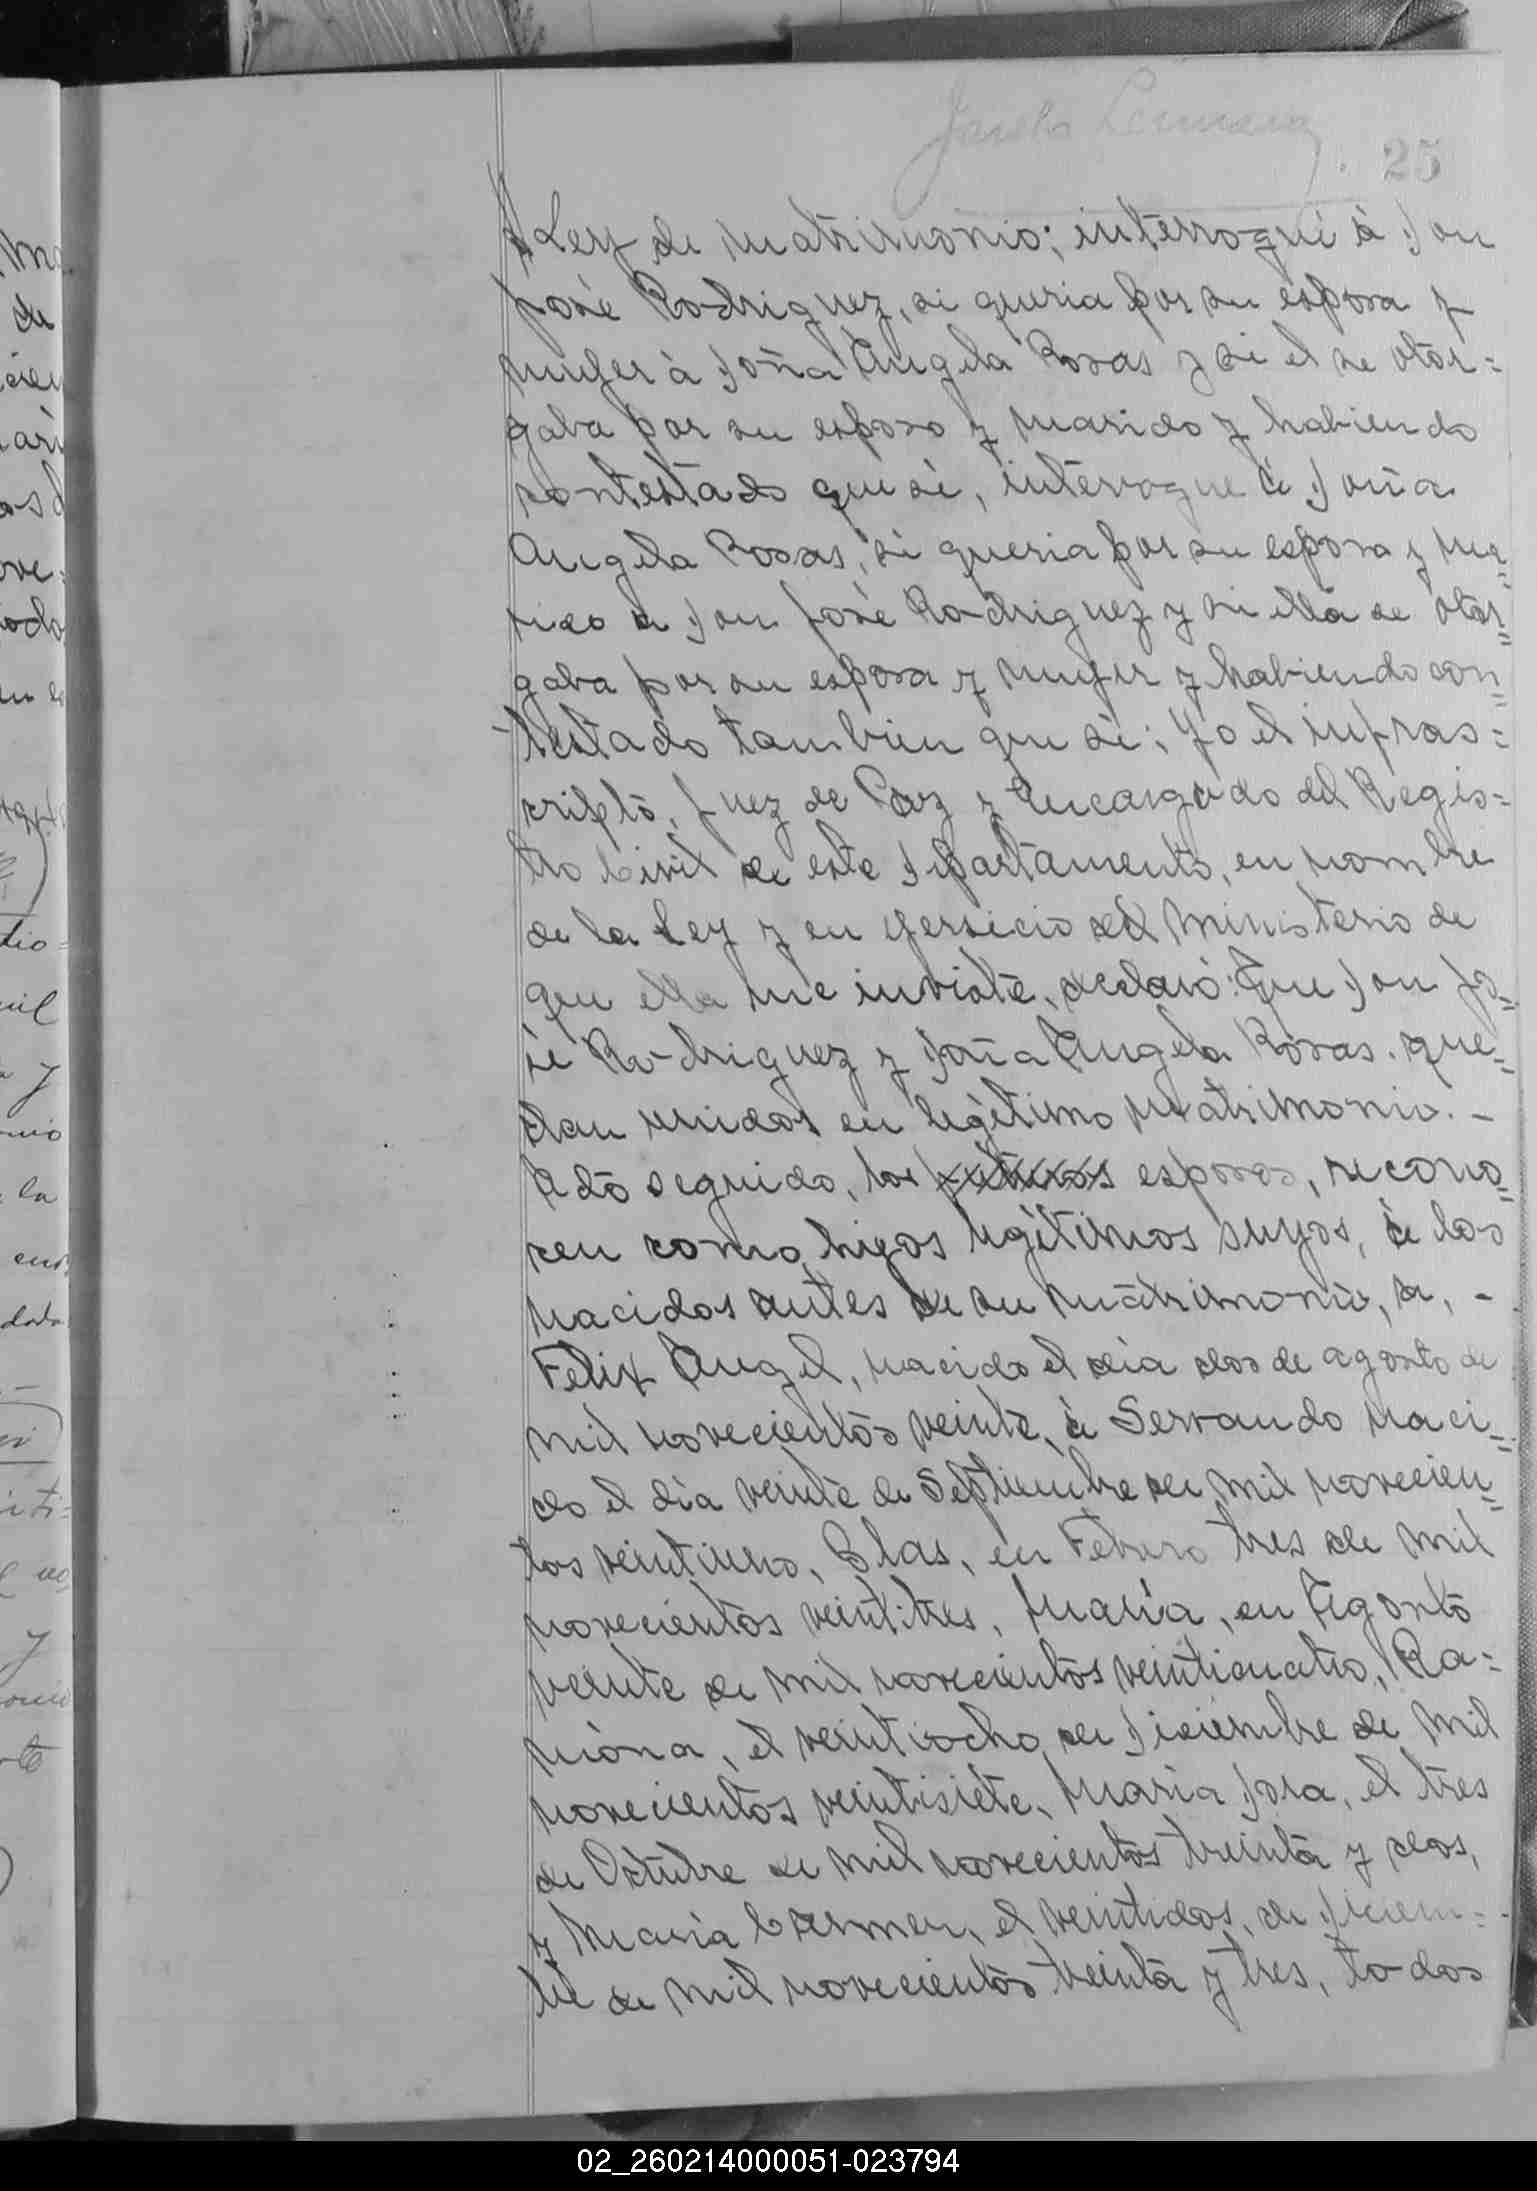 25
Ley de matrimonio; interrogué à Don
José Rodriguez, si queria por su esposa y
mujer à Doña Angela Rosas y si el se otor=
gaba por su esposo y marido y habiendo
contestado que si, interrogue à Doña
Angela Rosas, si queria por su esposo y ma=
rido a Don José Rodriguez y si ella se otor=
gaba por su esposa y mujer y habiendo con=
testado tambien que si; Yo el infras=
cripto, Juez de Paz y Encargado del Regis=
tro Civil de este Departamento, en nombre
de la Ley y en ejersicio del Ministerio de
que ella me inviste, declaró: Que Don Jo=
sé Rodriguez y Doña Angela Rosas. que=
dan unidos en legitimo matrimonio. -
Acto seguido, los futuros esposos, recono=
cen como hijos legitimos suyos, à los
nacidos antes de su matrimonio, a, -
Felix Angel, nacido el dia dos de agosto de
mil novecientos veinte, à Servando naci=
do el dia veinte de Septiembre de mil novecien=
tos veintiuno, Blas, en Febrero tres de mil
novecientos veintitres, Maria, en Agosto
veinte de mil novecientos veinticuatro, Ra=
mona, el veintiocho de Diciembre de mil
novecientos veintisiete, Maria Dora, el tres
de Octubre de mil novecientos treinta y dos,
y Maria Carmen, el veintidos, de Diciem=
bre de mil novecientos treinta y tres, todos
02_260214000051-023794